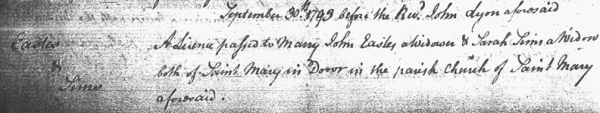 September 30th 1793 before the Revd. John Lyon aforesaid
Eastes & Sims
A Licence passed to Marry John Eastes a Widower & Sarah Sims a Widow
both of Saint Mary in Dovor in the parish Church of Saint Mary
aforesaid.